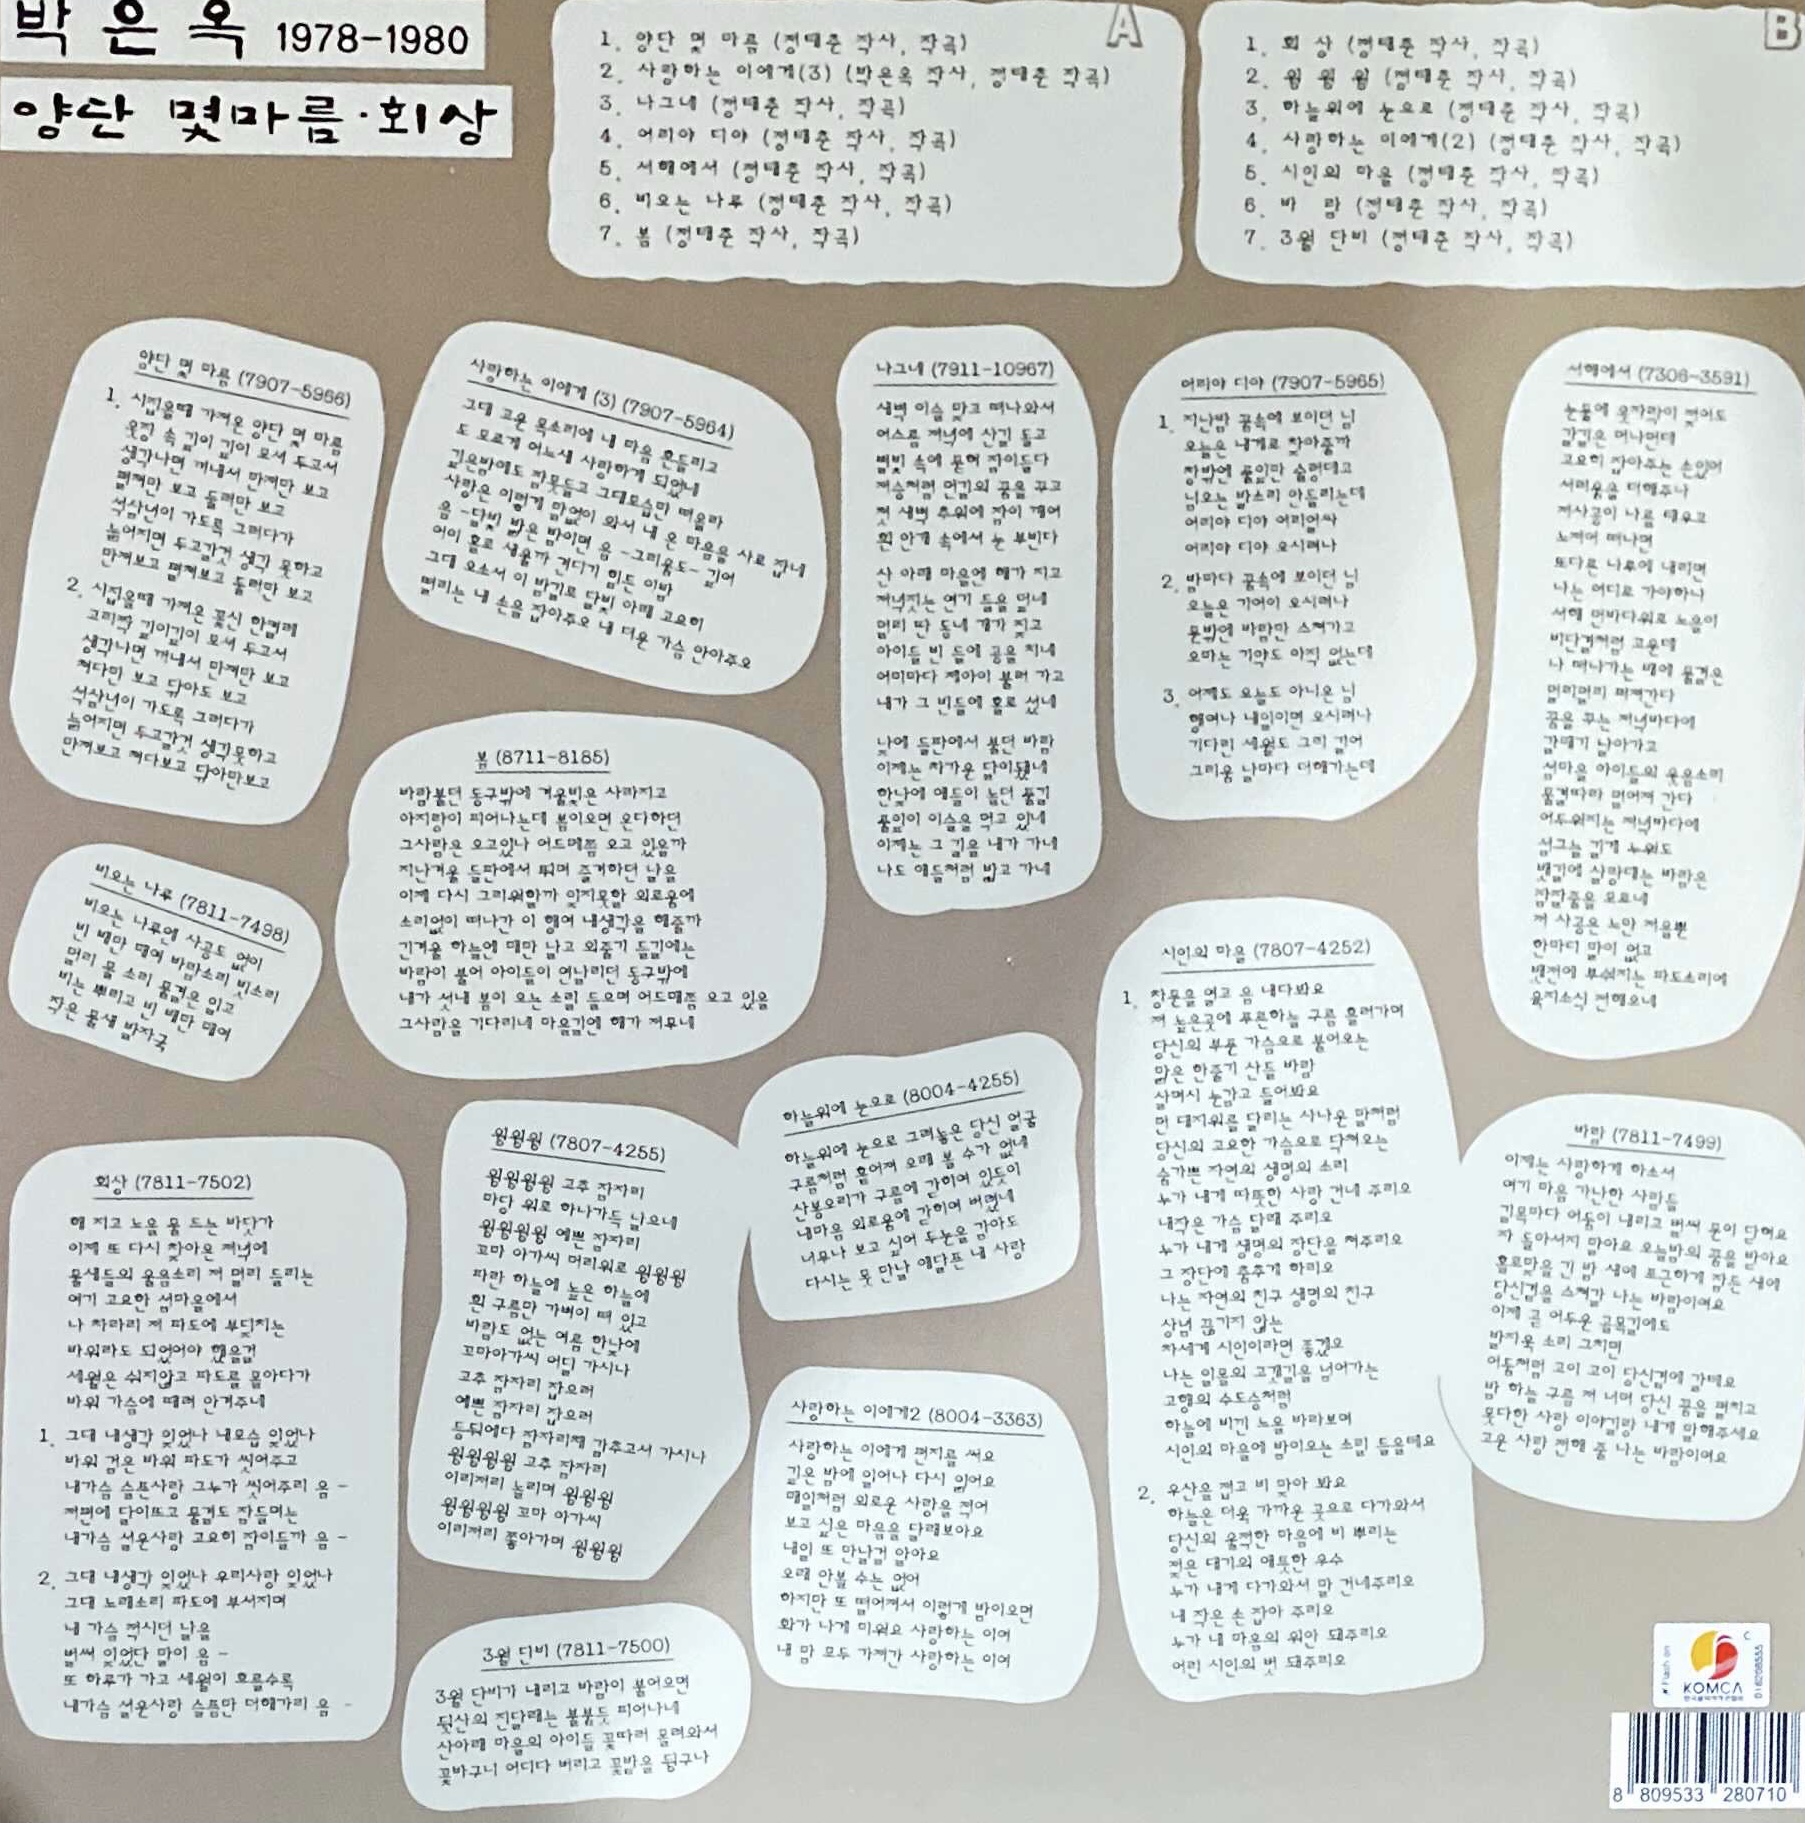 박 은 옥 1978-1980
양단 몇마름·회상
A
1. 양단 몇 마름 (정태춘 작사, 작곡)
2. 사랑하는 이에게(3) (박은옥 작사, 정태춘 작곡)
3. 나그네 (정태춘 작사, 작곡)
4. 어리아 디야 (정태춘 작사, 작곡)
5. 서해에서 (정태춘 작사, 작곡)
6. 비오는 나루 (정태춘 작사, 작곡)
7. 봄 (정태춘 작사, 작곡)
B
1. 회 상 (정태춘 작사, 작곡)
2. 윙 윙 윙 (정태춘 작사, 작곡)
3. 하늘위에 눈으로 (정태춘 작사, 작곡)
4. 사랑하는 이에게(2) (정태춘 작사, 작곡)
5. 시인의 마음 (정태춘 작사, 작곡)
6. 바 람 (정태춘 작사, 작곡)
7. 3월 단비 (정태춘 작사, 작곡)
양단 몇 마름 (7907-5966)
1. 시집올때 가져온 양단 몇 마름
옷장 속 깊이 깊이 모셔 두고서
생각나면 꺼내서 만져만 보고
펼쳐만 보고 둘러만 보고
석삼년이 가도록 그러다가
늙어지면 두고갈것 생각 못하고
만져보고 펼쳐보고 둘러만 보고
2. 시집올때 가져온 꽃신 한켤레
고리짝 깊이깊이 모셔 두고서
생각나면 꺼내서 만져만 보고
쳐다만 보고 닦아도 보고
석삼년이 가도록 그러다가
늙어지면 두고갈것 생각못하고
만져보고 쳐다보고 닦아만보고
사랑하는 이에게 (3) (7907-5964)
그대 고운 목소리에 내 마음 흔들리고
도 모르게 어느새 사랑하게 되었네
깊은밤에도 잠못들고 그대모습만 떠올라
사랑은 이렇게 말없이 와서 내 온 마음을 사로 잡네
음 -달빛 밝은 밤이면 음 -그리움도- 깊어
어이 홀로 새울까 견디기 힘든 이밤
그대 오소서 이 밤길로 달빛 아래 고요히
떨리는 내 손을 잡아주오 내 더운 가슴 안아주오
나그네 (7911-10967)
새벽 이슬 맞고 떠나와서
어스름 저녁에 산길 돌고
별빛 속에 묻혀 잠이들다
저승처럼 먼길의 꿈을 꾸고
첫 새벽 추위에 잠이 깨어
흰 안개 속에서 눈 부빈다
산 아래 마을엔 해가 지고
저녁짓는 연기 들을 덮네
멀리 딴 동네 개가 짖고
아이들 빈 들에 공을 치네
어미마다 제아이 불러 가고
내가 그 빈들에 홀로 섰네
낮에 들판에서 불던 바람
이제는 차가운 달이됐네
한낮에 애들이 놀던 풀길
풀잎이 이슬을 먹고 있네
이제는 그 길을 내가 가네
나도 애들처럼 밟고 가네
어리아 디야 (7907-5965)
1. 지난밤 꿈속에 보이던 님
오늘은 내게로 찾아줄까
창밖엔 풀잎만 술렁대고
님오는 발소리 안들리는데
어리야 디야 어리얼싸
어리야 디야 오시려나
2. 밤마다 꿈속에 보이던 님
오늘은 기어이 오시려나
문밖엔 바람만 스쳐가고
오마는 기약도 아직 없는데
3. 어제도 오늘도 아니온 님
행여나 내일이면 오시려나
기다린 세월도 그리 길어
그리움 날마다 더해가는데
서해에서 (7306-3591)
눈물에 옷자락이 젖어도
갈길은 머나먼데
고요히 잡아주는 손있어
서러움을 더해주나
저사공이 나를 태우고
노저어 떠나면
또다른 나루에 내리면
나는 어디로 가야하나
서해 먼바다위로 노을이
비단결처럼 고운데
나 떠나가는 배에 물결은
멀리멀리 퍼져간다
꿈을 꾸는 저녁바다에
갈매기 날아가고
섬마을 아이들의 웃음소리
물결따라 멀어져 간다
어두워지는 저녁바다에
섬그늘 길게 누워도
뱃길에 살랑대는 바람은
잠잘줄을 모르네
저 사공은 노만 저을뿐
한마디 말이 없고
뱃전에 부숴지는 파도소리에
육지소식 전해오네
봄 (8711-8185)
바람불던 동구밖에 겨울빛은 사라지고
아지랑이 피어나는데 봄이오면 온다하던
그사람은 오고있나 어드메쯤 오고 있을까
지난겨울 들판에서 뛰며 즐거하던 날을
이제 다시 그리워할까 잊지못할 외로움에
소리없이 떠나간 이 행여 내생각을 해줄까
긴겨울 하늘엔 매만 날고 외줄기 들길에는
바람이 불어 아이들이 연날리던 동구밖에
내가 서서 봄이 오는 소릴 들으며 어드메쯤 오고 있을
그사람을 기다리네 마을길엔 해가 저무네
비오는 나루 (7811-7498)
비오는 나루엔 사공도 없이
빈 배만 매여 바람소리 빗소리
멀리 물 소리 물결은 일고
비는 뿌리고 빈 배만 매여
작은 물새 발자국
회상 (7811-7502)
해 지고 노을 물 드는 바닷가
이제 또 다시 찾아온 저녁에
물새들의 울음소리 저 멀리 들리는
여기 고요한 섬마을에서
나 차라리 저 파도에 부딪치는
바위라도 되었어야 했을걸
세월은 쉬지않고 파도를 몰아다가
바위 가슴에 때려 안겨주네
1. 그대 내생각 잊었나 내모습 잊었나
바위 검은 바위 파도가 씻어주고
내가슴 슬픈사랑 그누가 씻어주리 음 -
저편에 달이뜨고 물결도 잠들며는
내가슴 설운사랑 고요히 잠이들까 음 -
2. 그대 내생각 잊었나 우리사랑 잊었나
그대 노래소리 파도에 부서지며
내 가슴 적시던 날을
벌써 잊었단 말이 음 -
또 하루가 가고 세월이 흐를수록
내가슴 설운사랑 슬픔만 더해가리 음 -
윙윙윙 (7807-4255)
윙윙윙윙 고추 잠자리
마당 위로 하나가득 날으네
윙윙윙윙 예쁜 잠자리
꼬마 아가씨 머리위로 윙윙윙
파란 하늘에 높은 하늘에
흰 구름만 가벼이 떠 있고
바람도 없는 여름 한낮에
꼬마아가씨 어딜 가시나
고추 잠자리 잡으러
예쁜 잠자리 잡으러
등뒤에다 잠자리채 감추고서 가시나
윙윙윙윙 고추 잠자리
이리저리 놀리며 윙윙윙
윙윙윙윙 꼬마 아가씨
이리저리 쫓아가며 윙윙윙
3월 단비 (7811-7500)
3월 단비가 내리고 바람이 불어오면
뒷산의 진달래는 불붙듯 피어나네
산아래 마을의 아이들 꽃따러 올려와서
꽃바구니 어디다 버리고 꽃밭을 뒹구나
하늘위에 눈으로 (8004-4255)
하늘위에 눈으로 그려놓은 당신 얼굴
구름처럼 흩어져 오래 볼 수가 없네
산봉오리가 구름에 갇히어 있듯이
내마음 외로움에 갇히여 버렸네
너무나 보고 싶어 두눈을 감아도
다시는 못 만날 애달픈 내 사랑
사랑하는 이에게2 (8004-3363)
사랑하는 이에게 편지를 써요
깊은 밤에 일어나 다시 읽어요
매일처럼 외로운 사랑을 적어
보고 싶은 마음을 달래보아요
내일 또 만날걸 알아요
오래 안볼 수는 없어
하지만 또 떨어져서 이렇게 밤이오면
화가 나게 미워요 사랑하는 이여
내 맘 모두 가져간 사랑하는 이여
시인의 마을 (7807-4252)
1. 창문을 열고 음 내다봐요
저 높은곳에 푸른하늘 구름 흘러가며
당신의 부푼 가슴으로 불어오는
맑은 한줄기 산들 바람
살며시 눈감고 들어봐요
먼 대지위를 달리는 사나운 말처럼
당신의 고요한 가슴으로 닥쳐오는
숨가쁜 자연의 생명의 소리
누가 내게 따뜻한 사랑 건네 주리오
내작은 가슴 달래 주리오
누가 내게 생명의 장단을 쳐주리오
그 장단에 춤추게 하리오
나는 자연의 친구 생명의 친구
상념 끊기지 않는
사색게 시인이라면 좋겠오
나는 일몰의 고갯길을 넘어가는
고행의 수도승처럼
하늘에 비낀 노을 바라보며
시인의 마을에 밤이오는 소릴 들을테요
2. 우산을 접고 비 맞아 봐요
하늘은 더욱 가까운 곳으로 다가와서
당신의 울적한 마음에 비 뿌리는
젖은 대기의 애틋한 우수
누가 내게 다가와서 말 건네주리오
내 작은 손 잡아 주리오
누가 내 마음의 위안 돼주리오
어린 시인의 벗 돼주리오
바람 (7811-7499)
이제는 사랑하게 하소서
여기 마음 가난한 사람들
길목마다 어둠이 내리고 벌써 문이 닫혀요
자 돌아서지 말아요 오늘밤의 꿈을 받아요
홀로맞을 긴 밤 새에 포근하게 잠든 새에
당신곁을 스쳐갈 나는 바람이여요
이제 곧 어두운 골목길에도
발자욱 소리 그치면
어둠처럼 고이 고이 당신곁에 갈테요
밤 하늘 구름 저 너머 당신 꿈을 펼치고
못다한 사랑 이야길랑 내게 말해주세요
고운 사랑 전해 줄 나는 바람이여요
KOMCA
8 809533 280710